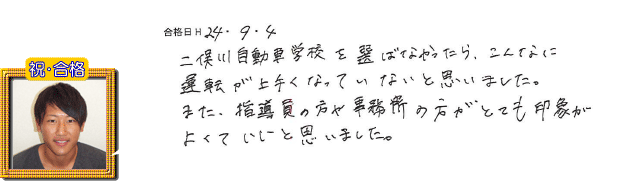 合格日 H 24・9・4
祝・合格
二俣川自動車学校を選ばなかったら、こんなに
運転が上手くなっていないと思いました。
また、指導員の方や事務所の方がとても印象が
よくていいと思いました。